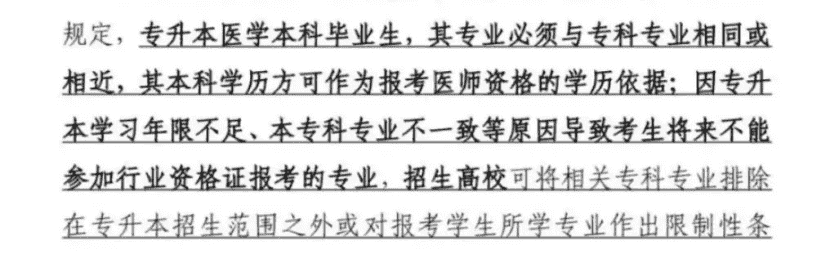 规定，专升本医学本科毕业生，其专业必须与专科专业相同或
相近，其本科学历方可作为报考医师资格的学历依据；因专升
本学习年限不足、本专科专业不一致等原因导致考生将来不能
参加行业资格证报考的专业，招生高校可将相关专科专业排除
在专升本招生范围之外或对报考学生所学专业作出限制性条